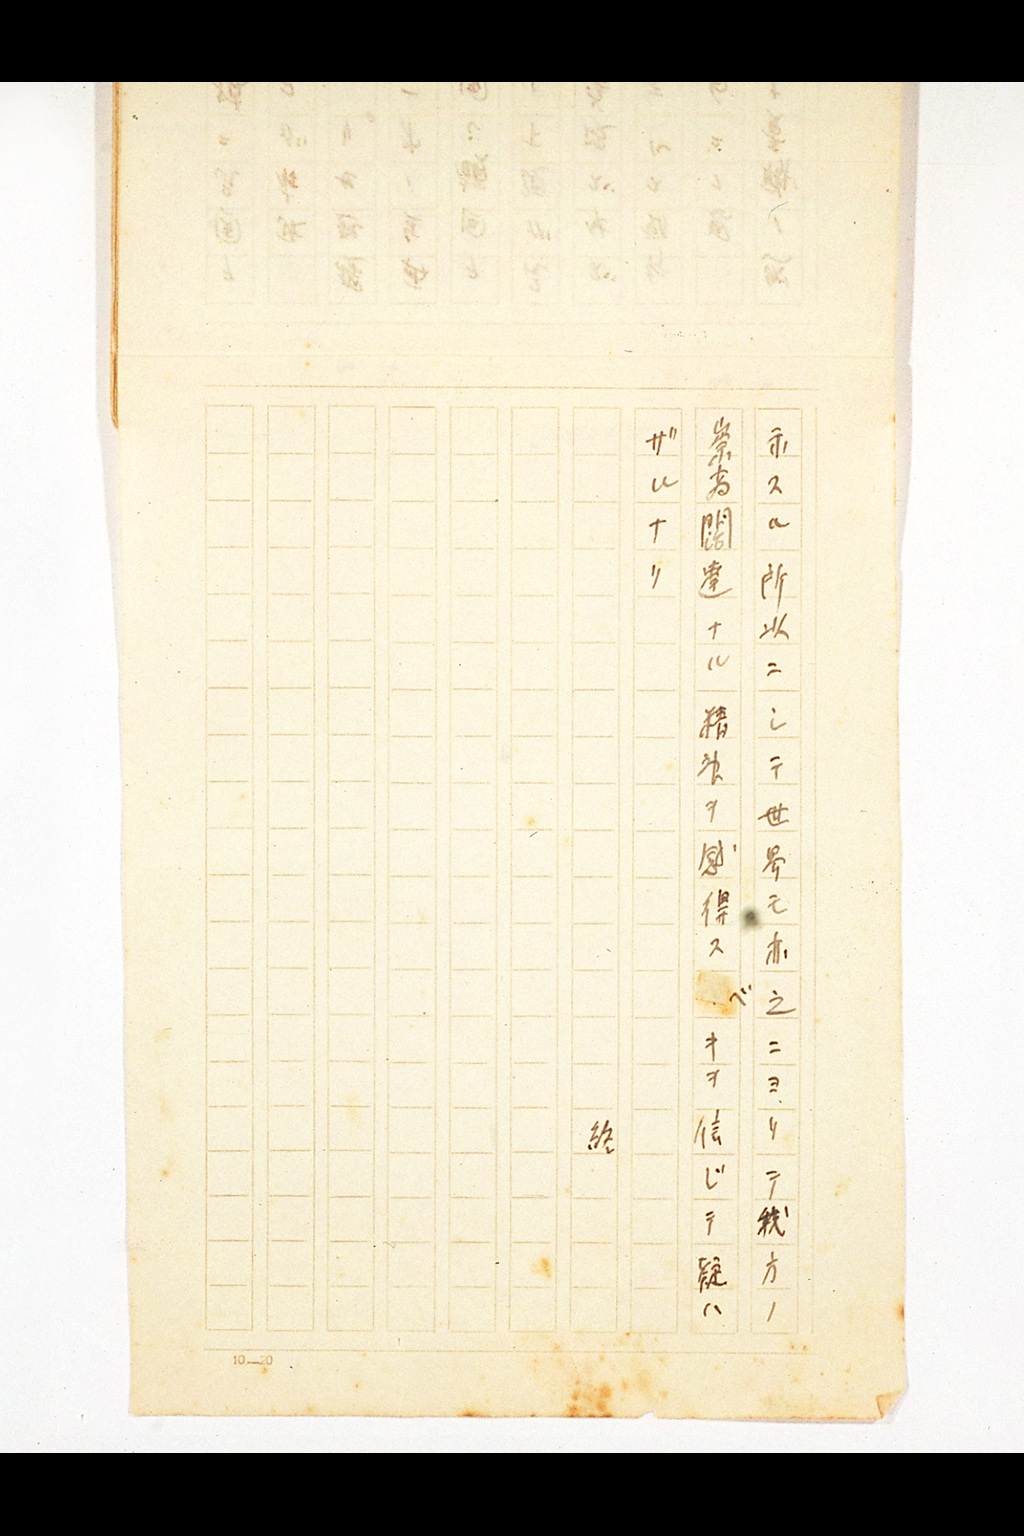 示スル所以ニシテ世界モ亦之ニヨリテ我方ノ
崇高闊達ナル精神ヲ感得スベキヲ信じテ疑ハ
ザルナリ
終
10—20